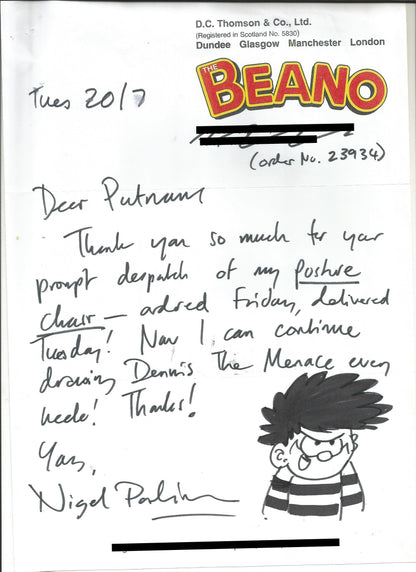 D.C. Thomson & Co., Ltd.
(Registered in Scotland No. 5830)
Dundee Glasgow Manchester London
THE BEANO
Tues 20/7
(order No. 23934)
Dear Putnam
Thank you so much for your
prompt despatch of my posture
chair – ordered Friday, delivered
Tuesday! Now I can continue
drawing Dennis The Menace every
week! Thanks!
Yours,
Nigel Parkinson